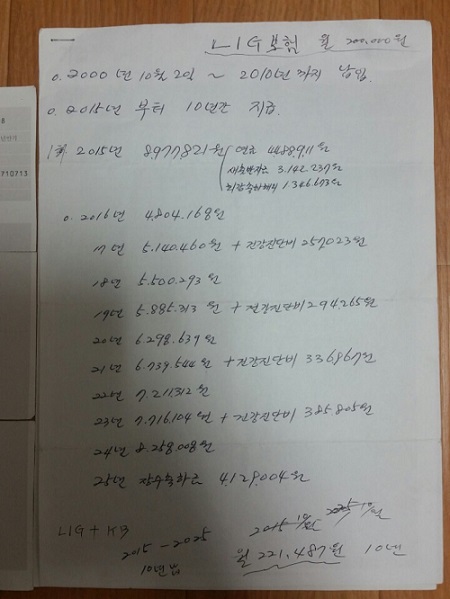 LIG보험 월 200,000원
0. 2000년 10월 2일 ~ 2010년 까지 납입
0. 2015년 부터 10년간 지급.
2015년 8.977.821원 연금 4.488.911원
3.142.237원
1.346.673원
0. 2016년 4.804.168원
17년 5.140.460원 + 건강진단비 257.023원
18년 5.500.293원
19년 5.885.313원 + 건강진단비 294.265원
20년 6.298.639원
21년 6.739.544원 + 건강진단비 336.867원
22년 7.211.312원
23년 7.716.104원 + 건강진단비 385.805원
24년 8.258.008원
25년 장수축하금 4.129.004원
LIG + KB
2015 - 2025
10년
월 221.487원 10년
710713